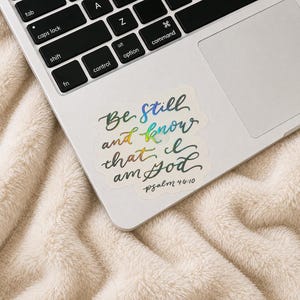 tab
caps lock
A
shift
Z
X
fn
control
alt
option
⌘
command
Be Still
and know
that I
am God
psalm 46:10